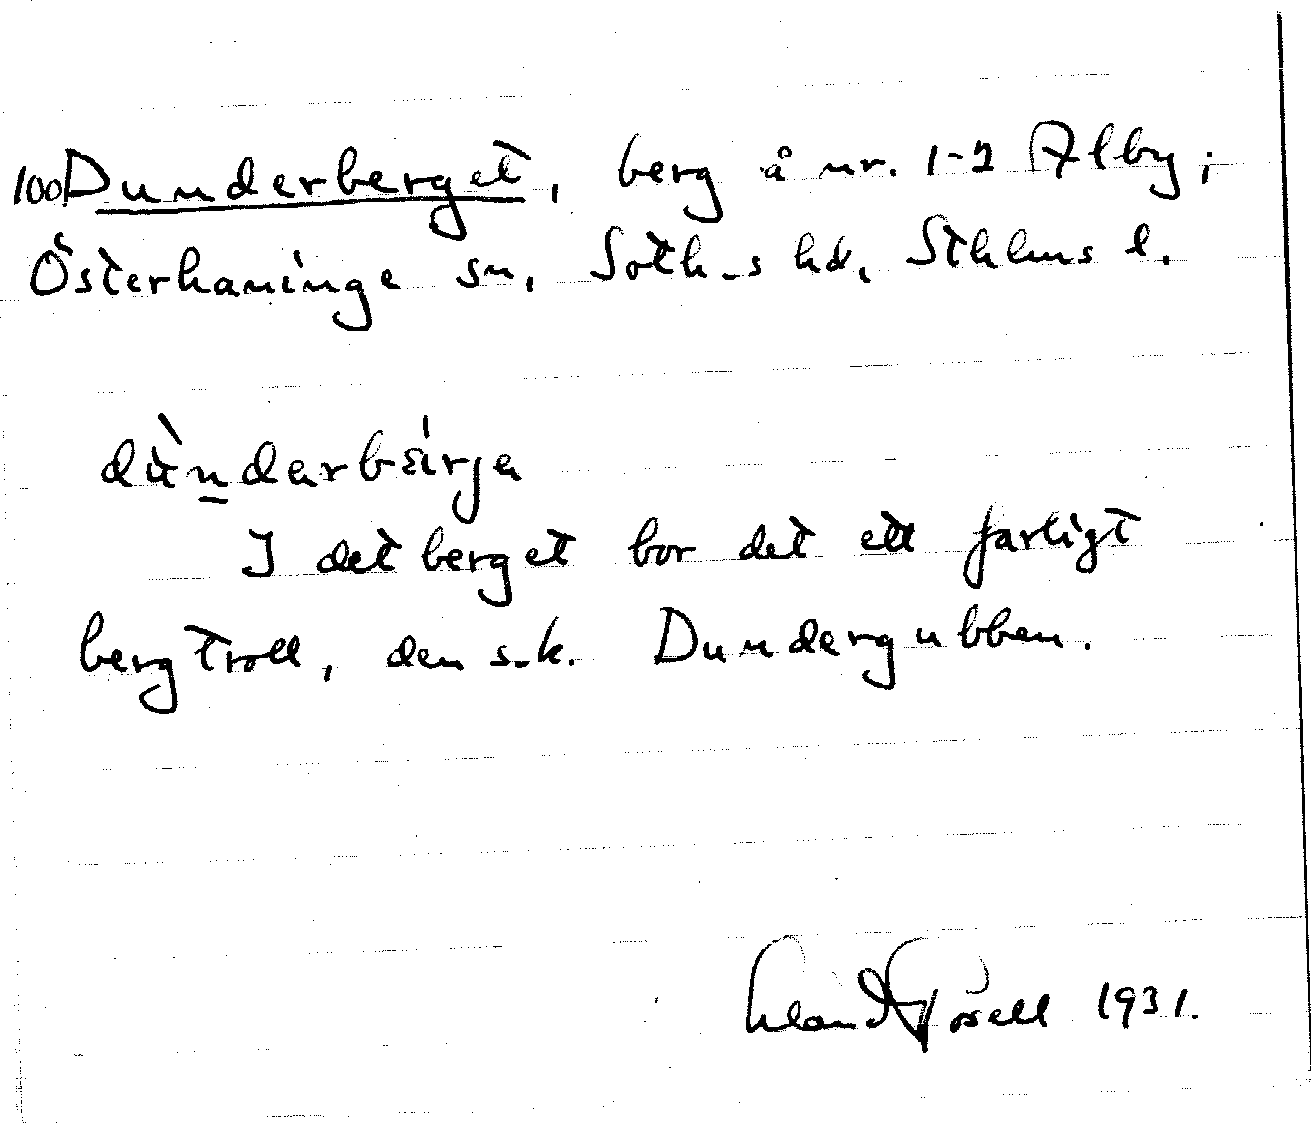 100 Dunderberget, berg å nr. 1-2 Ålby;
Österhaninge sn, Soth-s hd, Sthlms l.
dùndarbärja
I det berget bor det ett farligt
bergtroll, den s.k. Dundergubben.
1931.